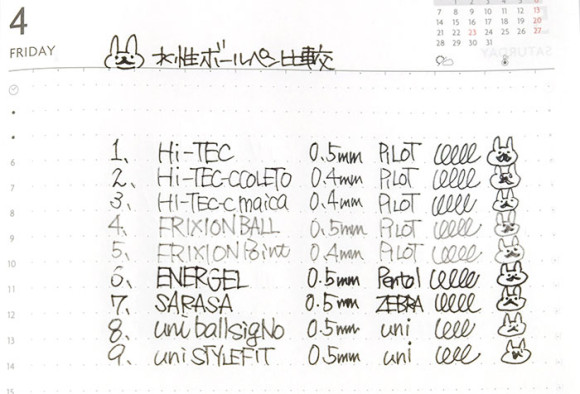 4
FRIDAY
水性ボールペン比較
7 8 9 10 11 12 13
14 15 16 17 18 19 20
21 22 23 24 25 26 27
28 29 30 31
1. Hi-TEC 0.5mm PILOT
6
2. Hi-TEC-CCOLETO 0.4mm PILOT
7
3. HI-TEC-C maica 0.4mm PILOT
8
4. FRIXION BALL 0.5mm PILOT
9
5. FRIXION Point 0.4mm PILOT
10
6. ENERGEL 0.5mm Pentel
11
7. SARASA 0.5mm ZEBRA
12
8. uni ball sigNo 0.5mm uni
13
9. uni STYLEFIT 0.5mm uni
14
15